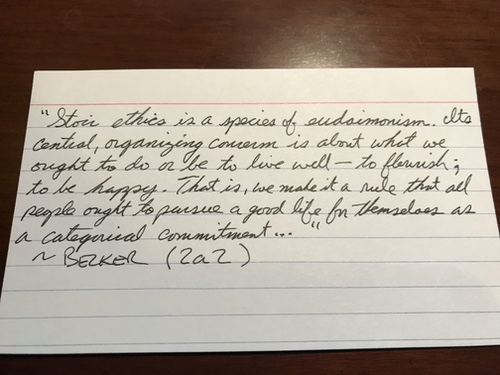 "Stoic ethics is a species of eudaimonism. Its
central, organizing concern is about what we
ought to do or be to live well — to flourish;
to be happy. That is, we make it a rule that all
people ought to pursue a good life for themselves as
a categorical commitment..."
~ BECKER (2a2)